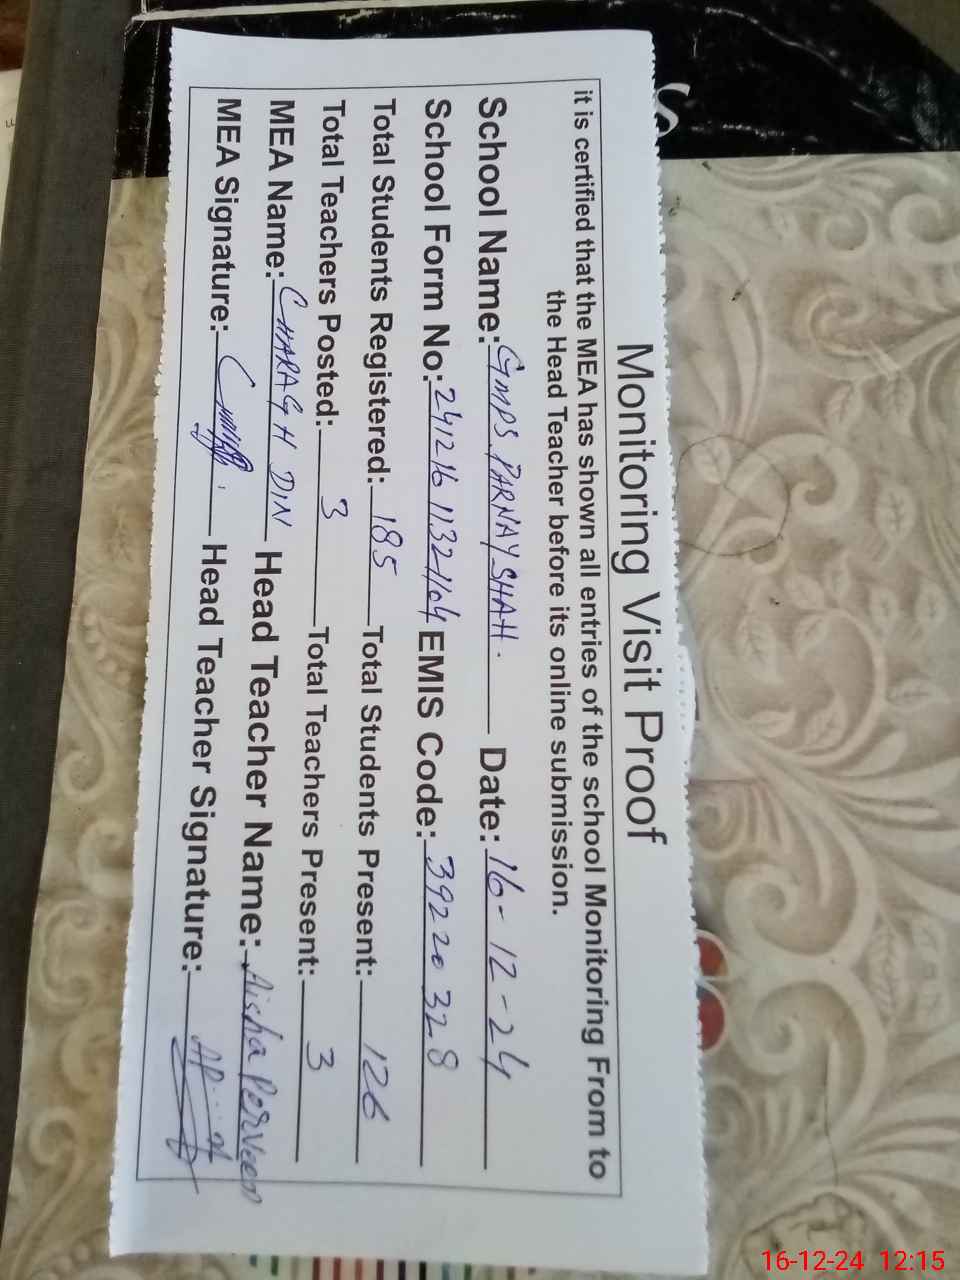 Monitoring Visit Proof
it is certified that the MEA has shown all entries of the school Monitoring From to
the Head Teacher before its online submission.
School Name: GMPS PARNAY SHAH. Date: 16-12-24
School Form No: 241216 1132464 EMIS Code: 39220328
Total Students Registered: 185 Total Students Present: 126
Total Teachers Posted: 3 Total Teachers Present: 3
MEA Name: CHARAGH DIN Head Teacher Name: Aisha Perveen
MEA Signature: Head Teacher Signature:
16-12-24 12:15